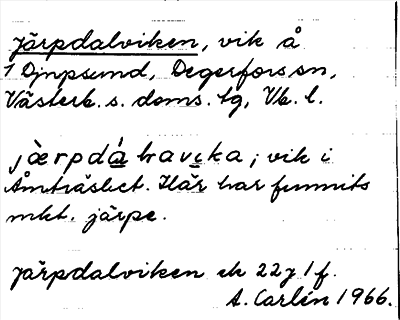 Järpdalviken, vik å
1 Djupsund, Degerfors sn,
Västerb. s. doms. tg, Vb. l.
jærpdálravıka; vik i
Åmträsket. Här har funnits
mkt. järpe.
Järpdalviken ek 22 J 1 f.
A. Carlén 1966.